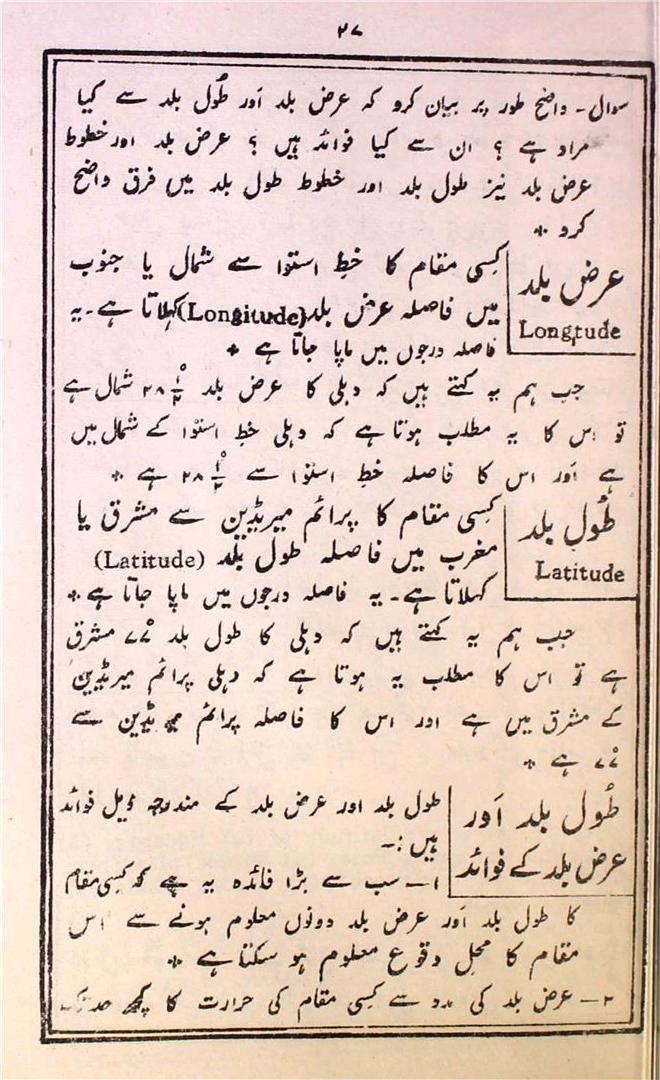 ۲۷
سوال۔ واضح طور پر بیان کرو کہ عرض بلد اَور طُول بلد سے کیا
مراد ہے ؟ ان سے کیا فوائد ہیں ؟ عرض بلد اور خطوط
عرض بلد نیز طول بلد اور خطوط طول بلد میں فرق واضح
کرو *
عرض بلد
Longtude
کسِی مقام کا خطِ استوا سے شمال یا جنوب
میں فاصلہ عرض بلد (Longitude) کہلاتا ہے۔ یہ
فاصلہ درجوں میں ماپا جاتا ہے *
جب ہم یہ کہتے ہیں کہ دہلی کا عرض بلد ۲۸ ۱/۲° شمال ہے
تو اس کا یہ مطلب ہوتا ہے کہ دہلی خطِ استوا کے شمال میں
ہے اَور اس کا فاصلہ خطِ استوا سے ۲۸ ۱/۲° ہے *
طُول بلد
Latitude
کسِی مقام کا پرائم میریڈین سے مشرق یا
مغرب میں فاصلہ طول بلد (Latitude)
کہلاتا ہے۔ یہ فاصلہ درجوں میں ماپا جاتا ہے *
جب ہم یہ کہتے ہیں کہ دہلی کا طول بلد ۷۷° مشرق
ہے تو اس کا مطلب یہ ہوتا ہے کہ دہلی پرائم میریڈین
کے مشرق میں ہے اور اس کا فاصلہ پرائم میریڈین سے
۷۷° ہے *
طُول بلد اَور
عرض بلد کے فوائد
طول بلد اور عرض بلد کے مندرجہ ذیل فوائد
ہیں :۔
۱۔ سب سے بڑا فائدہ یہ ہے کہ کسِی مقام
کا طول بلد اَور عرض بلد دونوں معلوم ہونے سے اس
مقام کا محل وقوع معلوم ہو سکتا ہے *
۲۔ عرض بلد کی مدد سے کسِی مقام کی حرارت کا کچھ حد تک